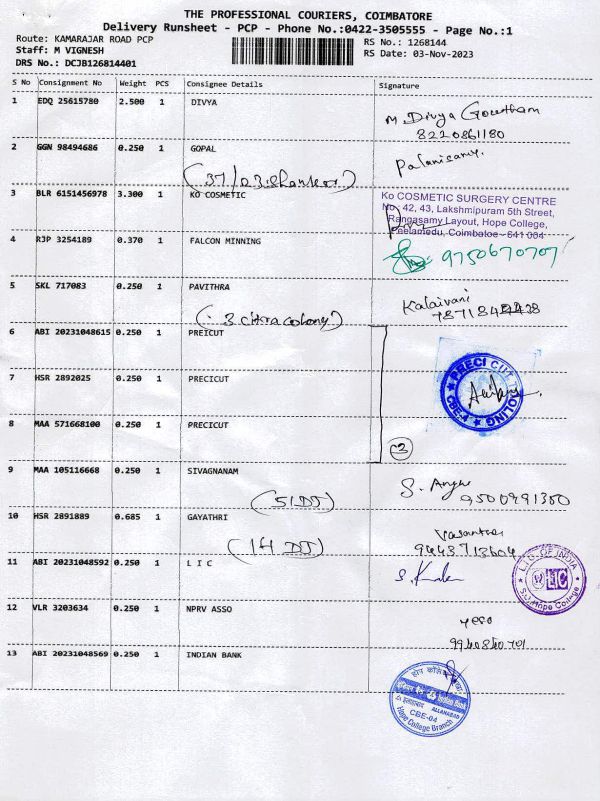 THE PROFESSIONAL COURIERS, COIMBATORE
Delivery Runsheet - PCP - Phone No.:0422-3505555 - Page No.:1
Route: KAMARAJAR ROAD PCP
Staff: M VIGNESH
DRS No.: DCJB126814401
RS No.: 1268144
RS Date: 03-Nov-2023
S No Consignment No Weight PCS Consignee Details Signature
1 EDQ 25615780 2.500 1 DIVYA M. Divya Goutham
8220861180
2 GGN 98494686 0.250 1 GOPAL Palanisamy.
3 BLR 6151456978 3.300 1 KO COSMETIC
KO COSMETIC SURGERY CENTRE
No: 42, 43, Lakshmipuram 5th Street,
Rangasamy Layout, Hope College,
Peelamedu, Coimbatoe - 641 004
4 RJP 3254189 0.370 1 FALCON MINNING 9750670707
5 SKL 717083 0.250 1 PAVITHRA Kalaivani
6 ABI 20231048615 0.250 1 PREICUT
7 HSR 2892025 0.250 1 PRECICUT
PRECI CUT TOOLING
CBE-4
8 MAA 571668100 0.250 1 PRECICUT
3
9 MAA 105116668 0.250 1 SIVAGNANAM
10 HSR 2891889 0.685 1 GAYATHRI
11 ABI 20231048592 0.250 1 L I C
L.I.C. OF INDIA
LIC
S.O. Hope College
12 VLR 3203634 0.250 1 NPRV ASSO
13 ABI 20231048569 0.250 1 INDIAN BANK
ALLAHABAD
CBE-04
Hope College Branch